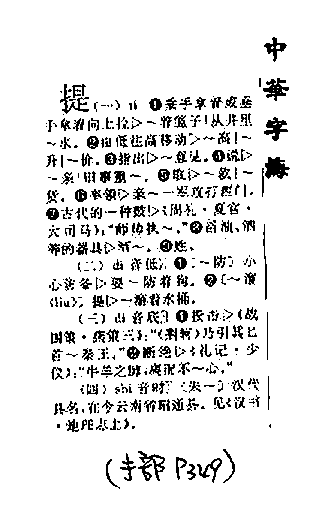 中華字海
提(一)tí ❶垂手拿着或垂
手拿着向上拉▷~着篮子|从井里
~水。❷由低往高移动▷~高|~
升|~价。❸指出▷~意见。❹说▷
~款|~
货。❻率领▷
❼古代的一种鼓▷《周礼·夏官·
大司马》:“师帅执~。”❽舀油、酒
等的器具▷酒~。❾姓。
(二)dī 音低 ❶[~防]小
心防备▷要~防着狗。❷[~溜
(liu)]提▷~溜着水桶。
(三)dǐ 音底 ❶投击▷《战
国策·燕策三》:“(荆轲)乃引其匕
首~秦王。”❷断绝▷《礼记·少
仪》:“牛羊之肺,离而不~心。”
(四)shí 音时 [朱~]汉代
县名,在今云南省昭通县。见《汉书
·地理志上》。
(手部 P349)